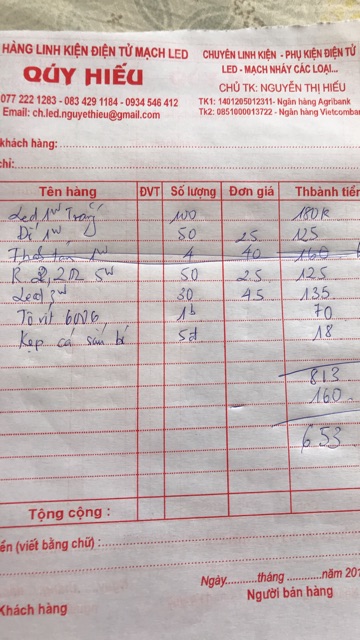 HÀNG LINH KIỆN ĐIỆN TỬ MẠCH LED
QÚY HIẾU
077 222 1283 - 083 429 1184 - 0934 546 412
Email: ch.led.nguyethieu@gmail.com
CHUYÊN LINH KIỆN - PHỤ KIỆN ĐIỆN TỬ
LED - MẠCH NHÁY CÁC LOẠI...
CHỦ TK: NGUYỄN THỊ HIẾU
TK1: 1401205012311- Ngân hàng Agribank
Tk2: 0851000013722 - Ngân hàng Vietcombank
khách hàng:
chỉ:
Tên hàng ĐVT Số lượng Đơn giá Thbành tiền
Led 1W Trắng 100 180k
Đế 1W 50 25 125
1W 4 40 160
R 2,2Ω 5W 50 25 125
Led 3W 30 45 135
Tô vít 6006 1b 70
Kẹp cá sấu bé 5d 18
813
160
653
Tổng cộng :
ền (viết bằng chữ) :
Ngày...........tháng ...........năm 201
Khách hàng
Người bán hàng